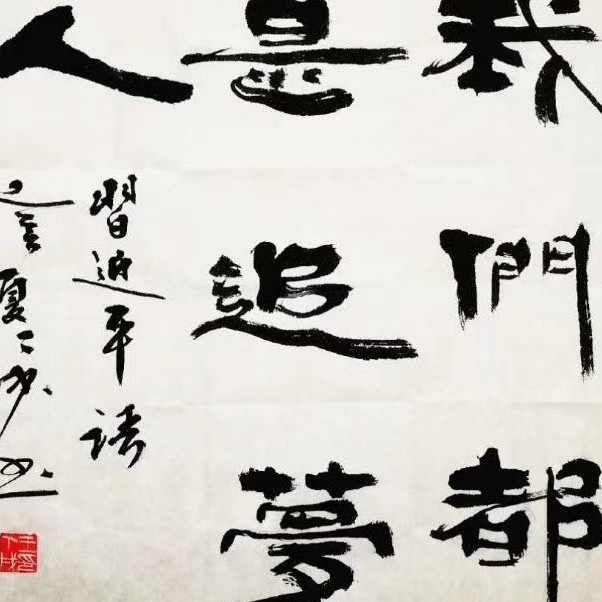 我們都
是追夢
人
習迫平語